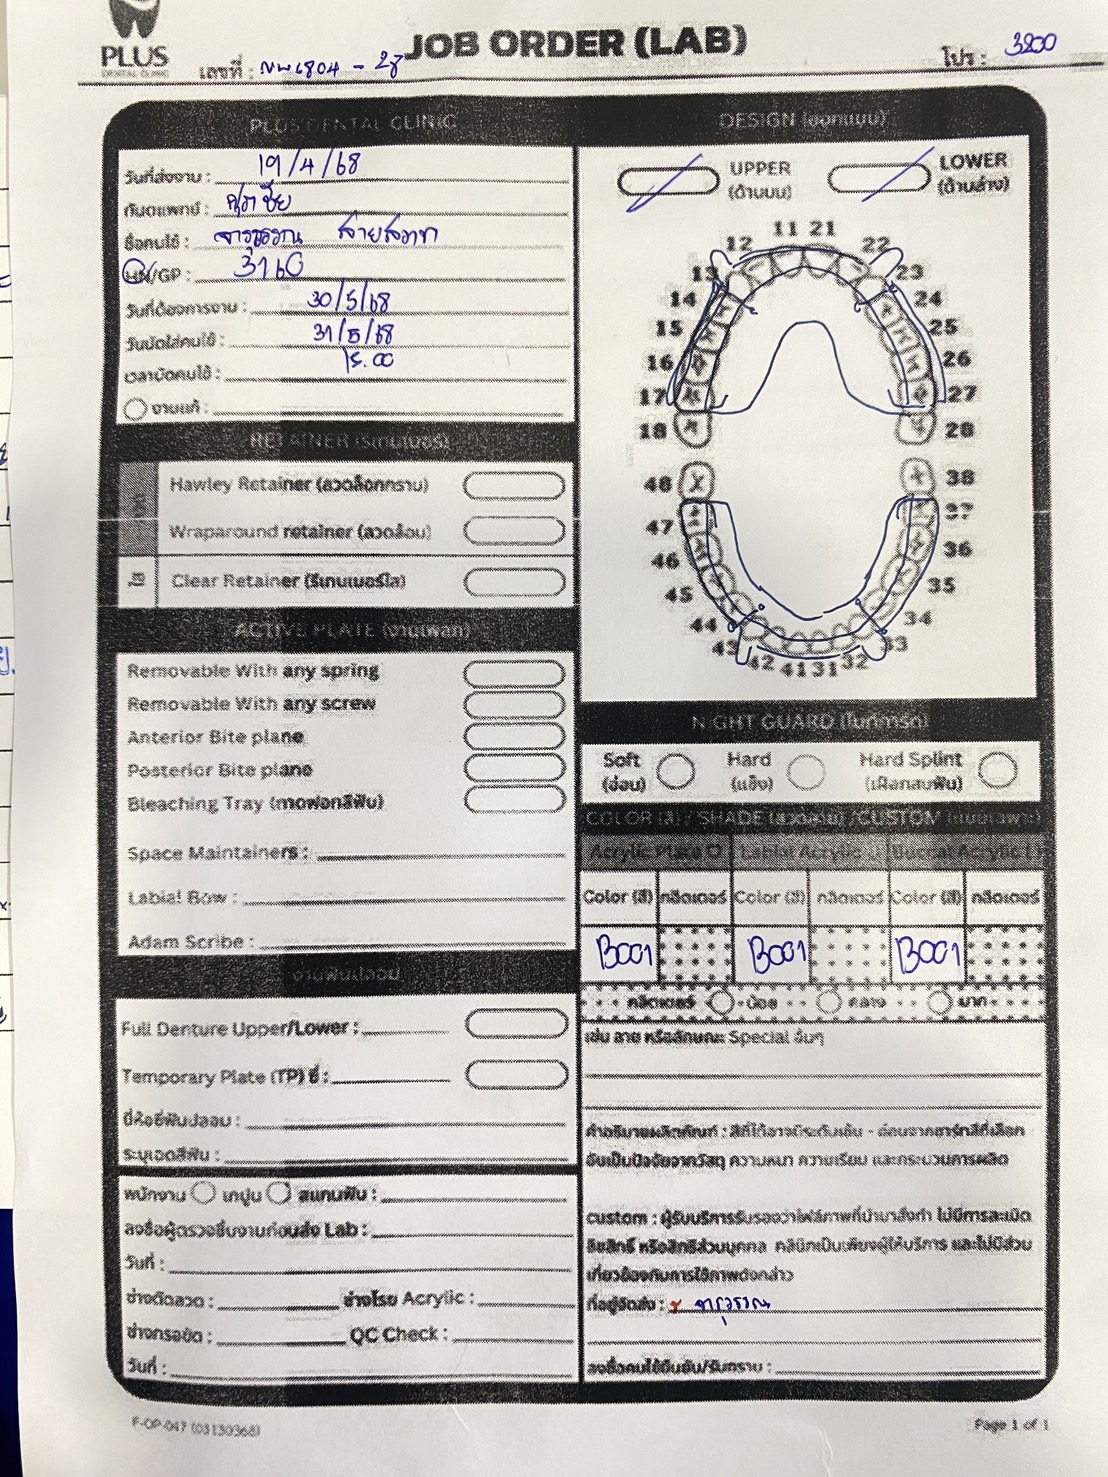 PLUS
DENTAL CLINIC
JOB ORDER (LAB)
เลขที่ : - 28
โปร : 3200
PLUS DENTAL CLINIC
วันที่ส่งงาน : 19/4/68
ทันตแพทย์ :
ชื่อคนไข้ : จารุวรรณ
HN/GP : 3160
วันที่ต้องการงาน : 30/5/68
วันนัดใส่คนไข้ : 31/5/68
เวลานัดคนไข้ : 15.00
งานแก้ :
RETAINER (รีเทนเนอร์)
Hawley Retainer (ลวดล็อกกราม)
Wraparound retainer (ลวดอ้อม)
Clear Retainer (รีเทนเนอร์ใส)
ACTIVE PLATE (งานเพลท)
Removable With any spring
Removable With any screw
Anterior Bite plane
Posterior Bite plane
Bleaching Tray (ถาดฟอกสีฟัน)
Space Maintainers :
Labial Bow :
Adam Scribe :
งานฟันปลอม
Full Denture Upper/Lower :
Temporary Plate (TP) ซี่ :
ยี่ห้อซี่ฟันปลอม :
ระบุเฉดสีฟัน :
พนักงาน เทปูน สแกนฟัน :
ลงชื่อผู้ตรวจชิ้นงานก่อนส่ง Lab :
วันที่ :
ช่างดัดลวด : ช่างโรย Acrylic :
ช่างกรอขัด : QC Check :
วันที่ :
DESIGN (ออกแบบ)
UPPER (ด้านบน)
LOWER (ด้านล่าง)
11 21
12 22
13 23
14 24
15 25
16 26
17 27
18 28
48 38
47 37
46 36
45 35
44 34
43 33
42 41 31 32
NIGHT GUARD (ไนท์การ์ด)
Soft (อ่อน) Hard (แข็ง) Hard Splint (เฝือกสบฟัน)
COLOR (สี) / SHADE (ลวดลาย) /CUSTOM (แบบเฉพาะ)
Acrylic Plate Labial Acrylic Buccal Acrylic
Color (สี) กลิตเตอร์ Color (สี) กลิตเตอร์ Color (สี) กลิตเตอร์
B001 B001 B001
กลิตเตอร์ น้อย กลาง มาก
เช่น ลาย หรือลักษณะ Special อื่นๆ
คำอธิบายผลิตภัณฑ์ : สีที่ได้อาจมีระดับเข้ม - อ่อนจากชาร์ทสีที่เลือก
อันเป็นปัจจัยจากวัสดุ ความหนา ความเรียบ และกระบวนการผลิต
custom : ผู้รับบริการรับรองว่าไฟล์ภาพที่นำมาสั่งทำ ไม่มีการละเมิด
ลิขสิทธิ์ หรือสิทธิส่วนบุคคล คลินิกเป็นเพียงผู้ให้บริการ และไม่มีส่วน
เกี่ยวข้องกับการใช้ภาพดังกล่าว
ที่อยู่จัดส่ง : จารุวรรณ
ลงชื่อคนไข้ยืนยัน/รับทราบ :
F-OP-047 (03130368)
Page 1 of 1